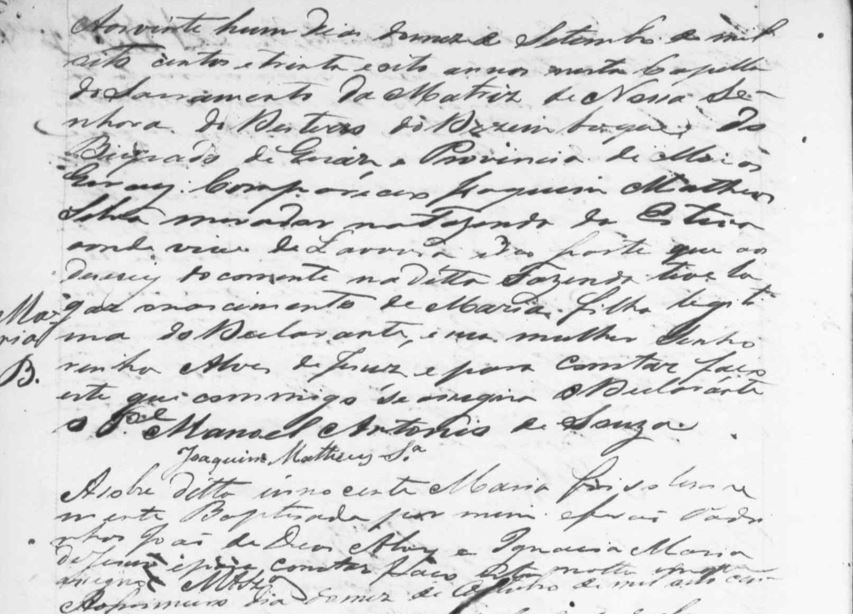 Aos vinte hum dias do mez de Setembro de mil
sete centos e trinta e oito annos nesta Capella
do Sacramento da Matriz de Nossa Se-
nhora do Desterro do do
Bispado de Goiáz e Provincia de Minas
Geraes Compareceo Joaquim Matheus
Silva morador na Fazenda da Estiva
aonde vive de Lavoura e deo parte que ao
do corrente na ditta Fazenda teve lu
gar o nascimento de Maria filha legiti
Ma
ma do Declarante, e sua mulher Senho
ria
rinha Alves de Jesuz e para constar faço
B.
este que commigo se assigna o Declarante
o P.e Manoel Antonio de Souza
Joaquim Matheus S.a
A sobre ditta innocente Maria foi solemne
mente Baptisada por mim e forão Padri
nhos João de Deos Alves e Ignacia Maria
de Jesuz e para constar faço esta
assigna
Ao primeiro dia do mez de de mil